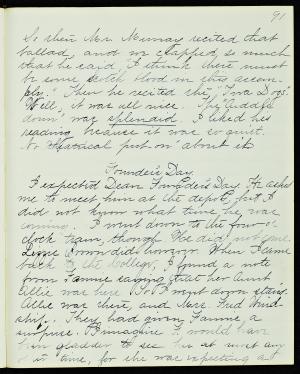 91
So then Mr. Murray recited that
ballad, and we clapped so much
that he said, "I think there must
be some Scotch blood in this assem-
bly." Then he recited the "Twa Dogs".
Well, it was all nice. The "Cuddle
doun" was splendid. I liked his
reading because it was so quiet.
No theatrical put-on about it.
Founder's Day.
I expected Dean Founder's Day. He asked
me to meet him at the depot, but I
did not know what time he was
coming. I went down to the four o'
clock train, though. He did not come.
Lizzie Brown did however. When I came
back to the College, I found a note
from Fannie saying that her Aunt
Allie was here. So I went down stairs.
Allie was there, and Miss
They had given Fannie a
surprise. I imagine I would have
been gladder to see her at most any
time, for she was expecting a